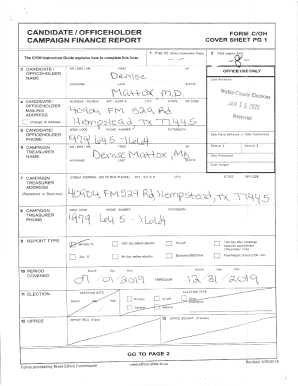 CANDIDATE / OFFICEHOLDER
CAMPAIGN FINANCE REPORT
FORM C/OH
COVER SHEET PG 1
The C/OH Instruction Guide explains how to complete this form.
1 Filer ID (Ethics Commission Filers)
2 Total pages filed:
8
3 CANDIDATE / OFFICEHOLDER NAME
MS / MRS / MR FIRST MI
Denise
NICKNAME LAST SUFFIX
Mattox M.D
OFFICE USE ONLY
Date Received
Waller County Elections
JAN 16 2020
Received
4 CANDIDATE / OFFICEHOLDER MAILING ADDRESS
Change of Address
ADDRESS / PO BOX; APT / SUITE #; CITY; STATE; ZIP CODE
40904 FM 529 Rd
Hempstead, TX 77445
5 CANDIDATE / OFFICEHOLDER PHONE
AREA CODE PHONE NUMBER EXTENSION
979 645-1664
Date Hand-delivered or Date Postmarked
6 CAMPAIGN TREASURER NAME
MS / MRS / MR FIRST MI
Denise Mattox, MD
NICKNAME LAST SUFFIX
Receipt # Amount $
Date Processed
Date Imaged
7 CAMPAIGN TREASURER ADDRESS
(Residence or Business)
STREET ADDRESS (NO PO BOX PLEASE); APT / SUITE #; CITY; STATE; ZIP CODE
40904 FM 529 Rd, Hempstead, TX 77445
8 CAMPAIGN TREASURER PHONE
AREA CODE PHONE NUMBER EXTENSION
979 645-1664
9 REPORT TYPE
January 15
30th day before election
Runoff
15th day after campaign treasurer appointment
(Officeholder Only)
July 15
8th day before election
Final Report (Attach C/OH - FR)
10 PERIOD COVERED
Month Day Year
07/01/2019 THROUGH 12/31/2019
11 ELECTION
ELECTION DATE
Month Day Year
ELECTION TYPE
Primary
General
Special
12 OFFICE
OFFICE HELD (if any)
13 OFFICE SOUGHT (if known)
GO TO PAGE 2
Forms provided by Texas Ethics Commission
www.ethics.state.tx.us